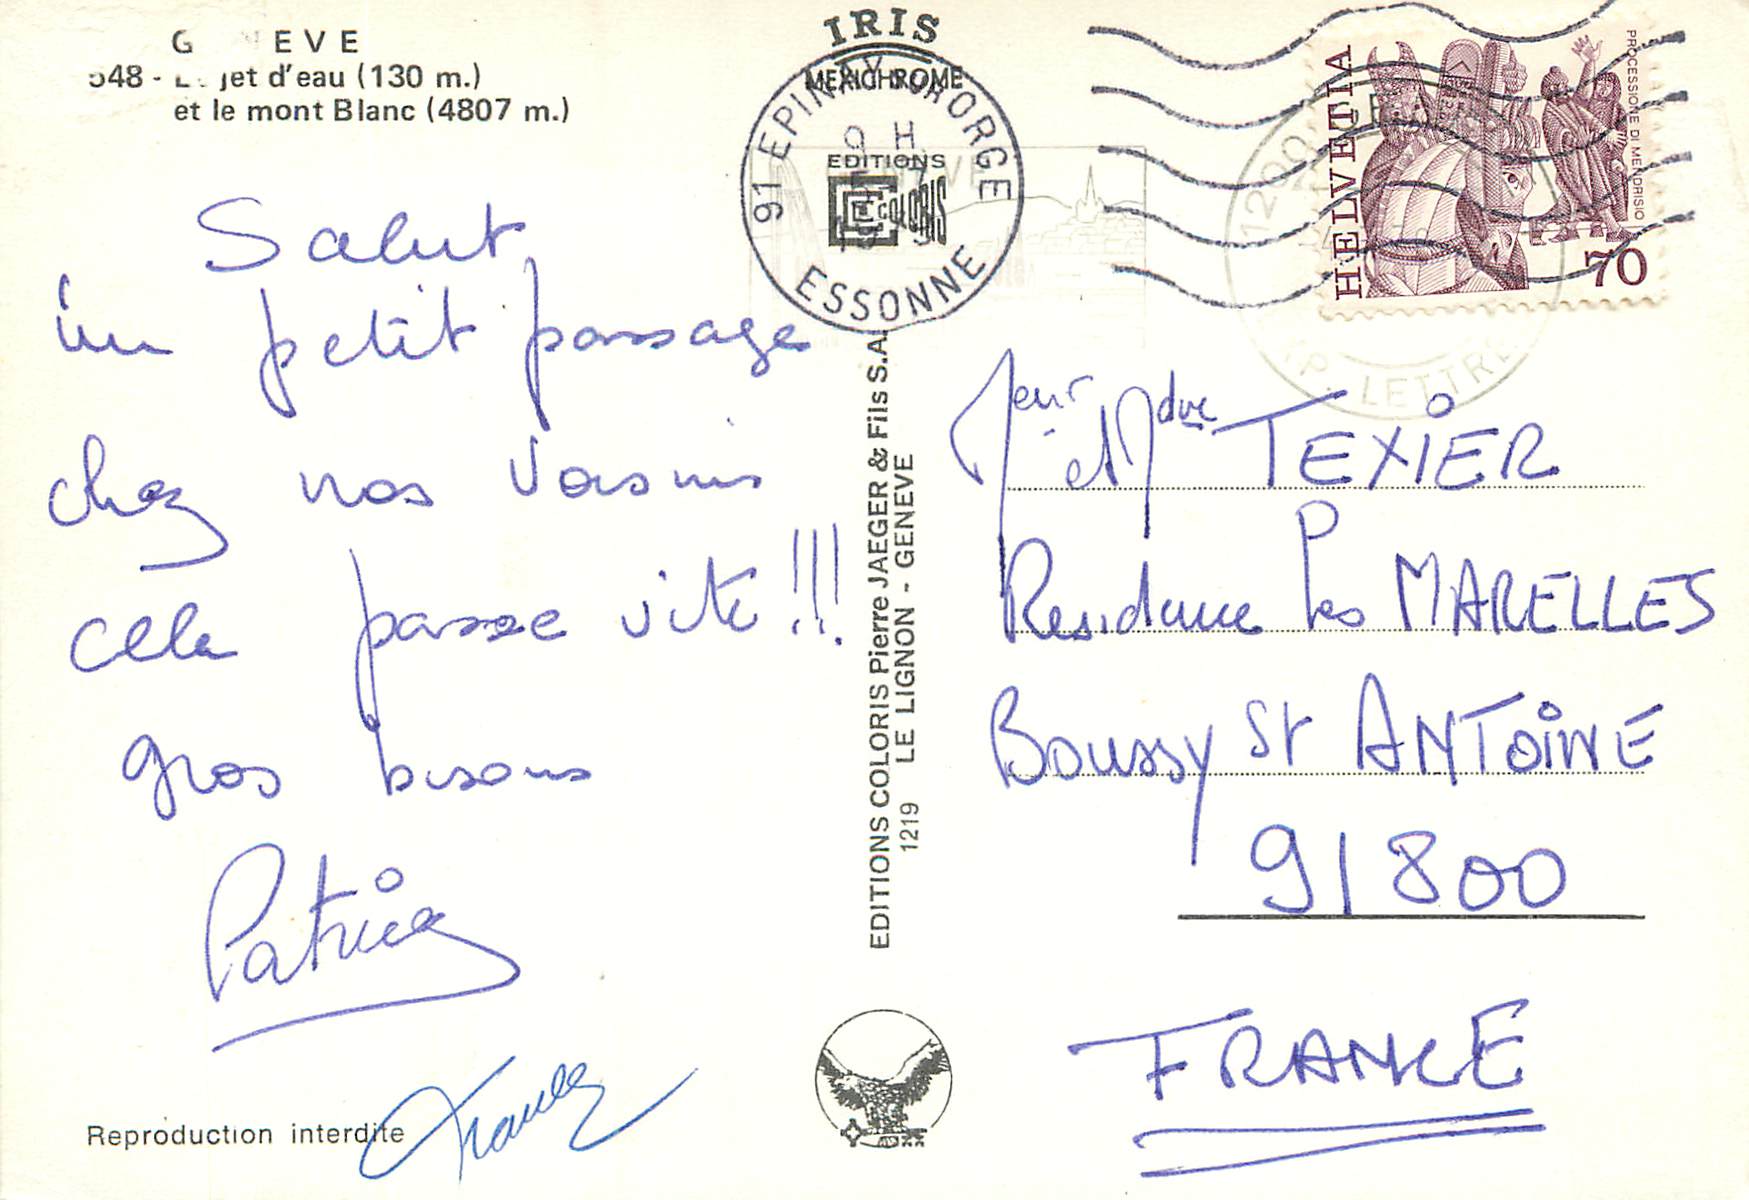 G EVE
548 - L jet d'eau (130 m.)
et le mont Blanc (4807 m.)
Salut
un petit passage
chez nos voisins
cela passe vite !!!
gros bisous
Patrick
Reproduction interdite
IRIS
MEXICHROME
EDITIONS
COLORIS
91 EPINAY SUR ORGE
9 H
ESSONNE
EDITIONS COLORIS Pierre JAEGER & Fils S.A.
1219 LE LIGNON - GENEVE
HELVETIA
PROCESSIONE DI MENDRISIO
70
1200
EXP. LETTRES
Meur et Mdme TEXIER
Residence Les MARELLES
Boussy St ANTOINE
91800
FRANCE